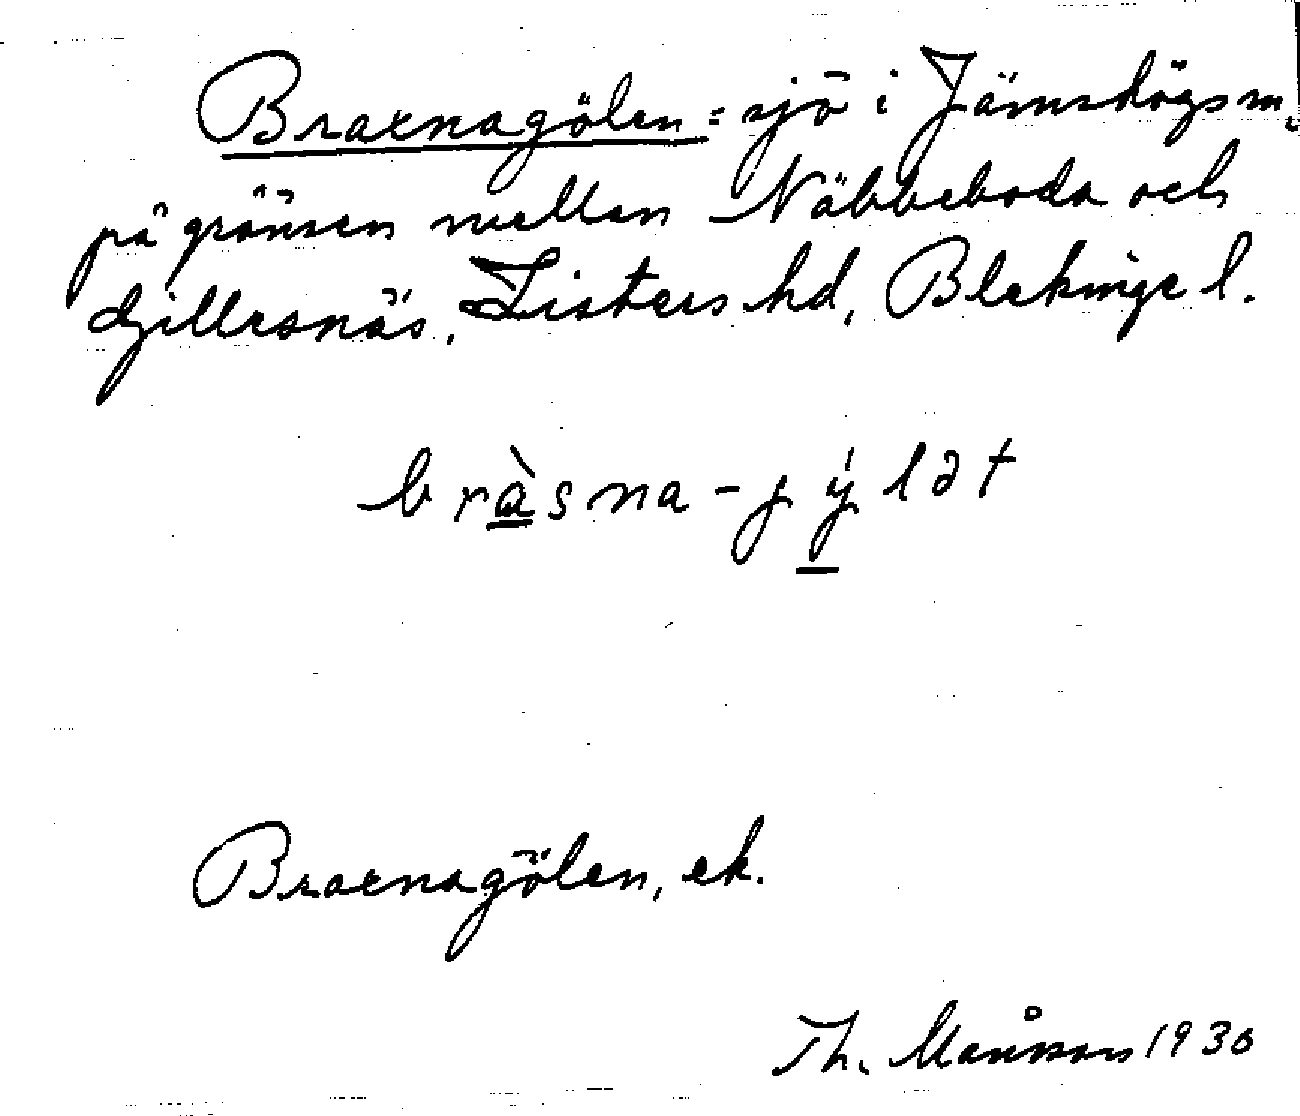 Braxnagölen = sjö i Jämshögs sn,
på gränsen mellan Näbbeboda och
Gillesnäs, Listers hd, Blekinge l.
bràsna-jýlət
Braxnagölen, ek.
Th. Månsson 1930